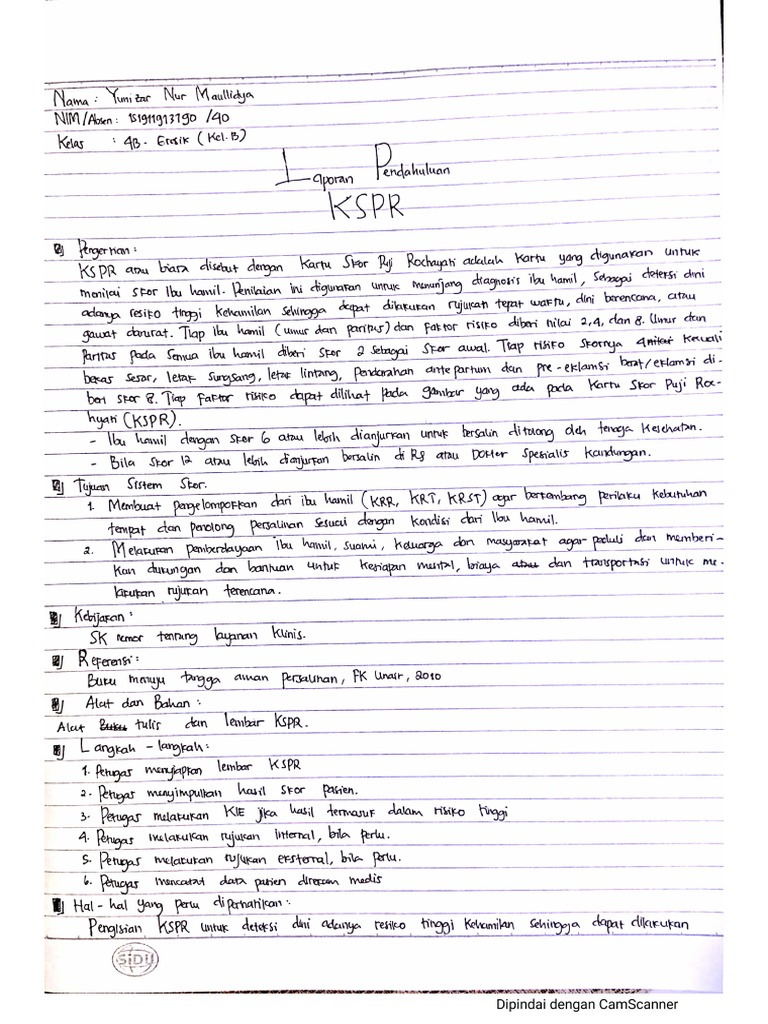 Nama : Yunizar Nur Maullidya
NIM/Absen : 151911913190 /40
Kelas : 4B - Gresik ( Kel. B )
Laporan Pendahuluan
KSPR
Pengertian :
KSPR atau biasa disebut dengan Kartu Skor Puji Rochayati adalah kartu yang digunakan untuk
menilai skor Ibu hamil. Penilaian ini digunakan untuk menunjang diagnosis ibu hamil, sebagai deteksi dini
adanya resiko tinggi kehamilan sehingga dapat dilakukan rujukan tepat waktu, dini berencana, atau
gawat darurat. Tiap ibu hamil (umur dan paritas) dan faktor risiko diberi nilai 2,4, dan 8. Umur dan
Paritas pada semua ibu hamil diberi skor 2 sebagai skor awal. Tiap risiko skornya 4 kecuali
bekas sesar, letak sungsang, letak lintang, pendarahan antepartum dan pre-eklamsi berat/eklamsi di-
beri skor 8. Tiap faktor risiko dapat dilihat pada gambar yang ada pada Kartu Skor Puji Roc-
hyati (KSPR).
- Ibu hamil dengan skor 6 atau lebih dianjurkan untuk bersalin ditolong oleh tenaga kesehatan.
- Bila skor 12 atau lebih dianjurkan bersalin di RS atau Dokter Spesialis kandungan.
Tujuan Sistem Skor.
1. Membuat pengelompokkan dari ibu hamil (KRR, KRT, KRST) agar berkembang perilaku kebutuhan
tempat dan penolong persalinan sesuai dengan kondisi dari Ibu hamil.
2. Melakukan pemberdayaan ibu hamil, suami, keluarga dan masyarakat agar peduli dan memberi-
kan dukungan dan bantuan untuk kesiapan mental, biaya dan transportasi untuk me-
lakukan rujukan terencana.
Kebijakan :
SK nomor tentang layanan klinis.
Referensi :
Buku menuju tangga aman persalinan, FK Unair, 2010
Alat dan Bahan :
Alat tulis dan lembar KSPR.
Langkah - langkah :
1. Petugas menyiapkan lembar KSPR
2. Petugas menyimpulkan hasil skor pasien.
3. Petugas melakukan KIE jika hasil termasuk dalam risiko tinggi
4. Petugas melakukan rujukan internal, bila perlu.
5. Petugas melakukan rujukan eksternal, bila perlu.
6. Petugas mencatat data pasien direkam medis
Hal - hal yang perlu diperhatikan :
Pengisian KSPR untuk deteksi dini adanya resiko tinggi kehamilan sehingga dapat dilakukan
SiDU
Dipindai dengan CamScanner